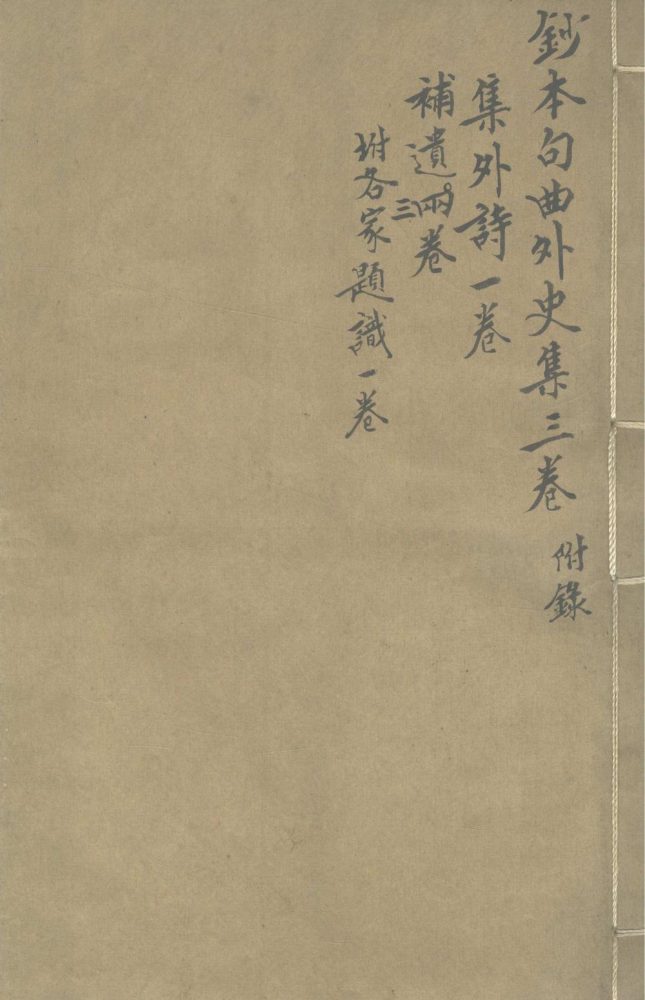 鈔本句曲外史集三卷 附錄
集外詩一卷
補遺兩三卷
坿各家題識一卷